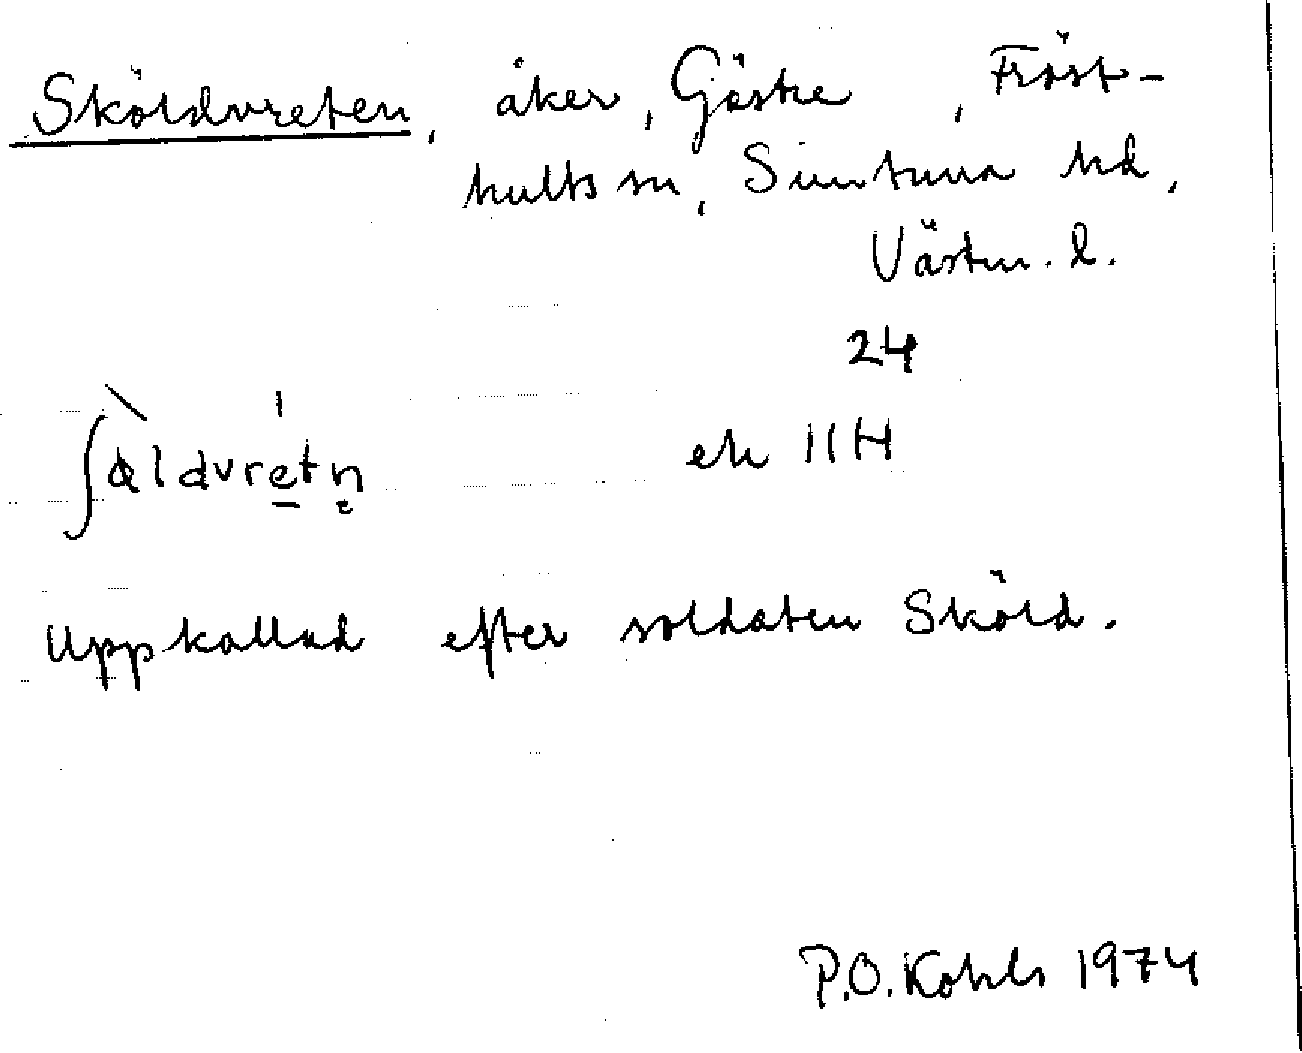 Sköldvreten, åker, Göstre, Fröst-
hults sn, Simtuna hd,
Västm. l.
24
ek 11H
Uppkallad efter soldaten Sköld.
P.O. Kohls 1974